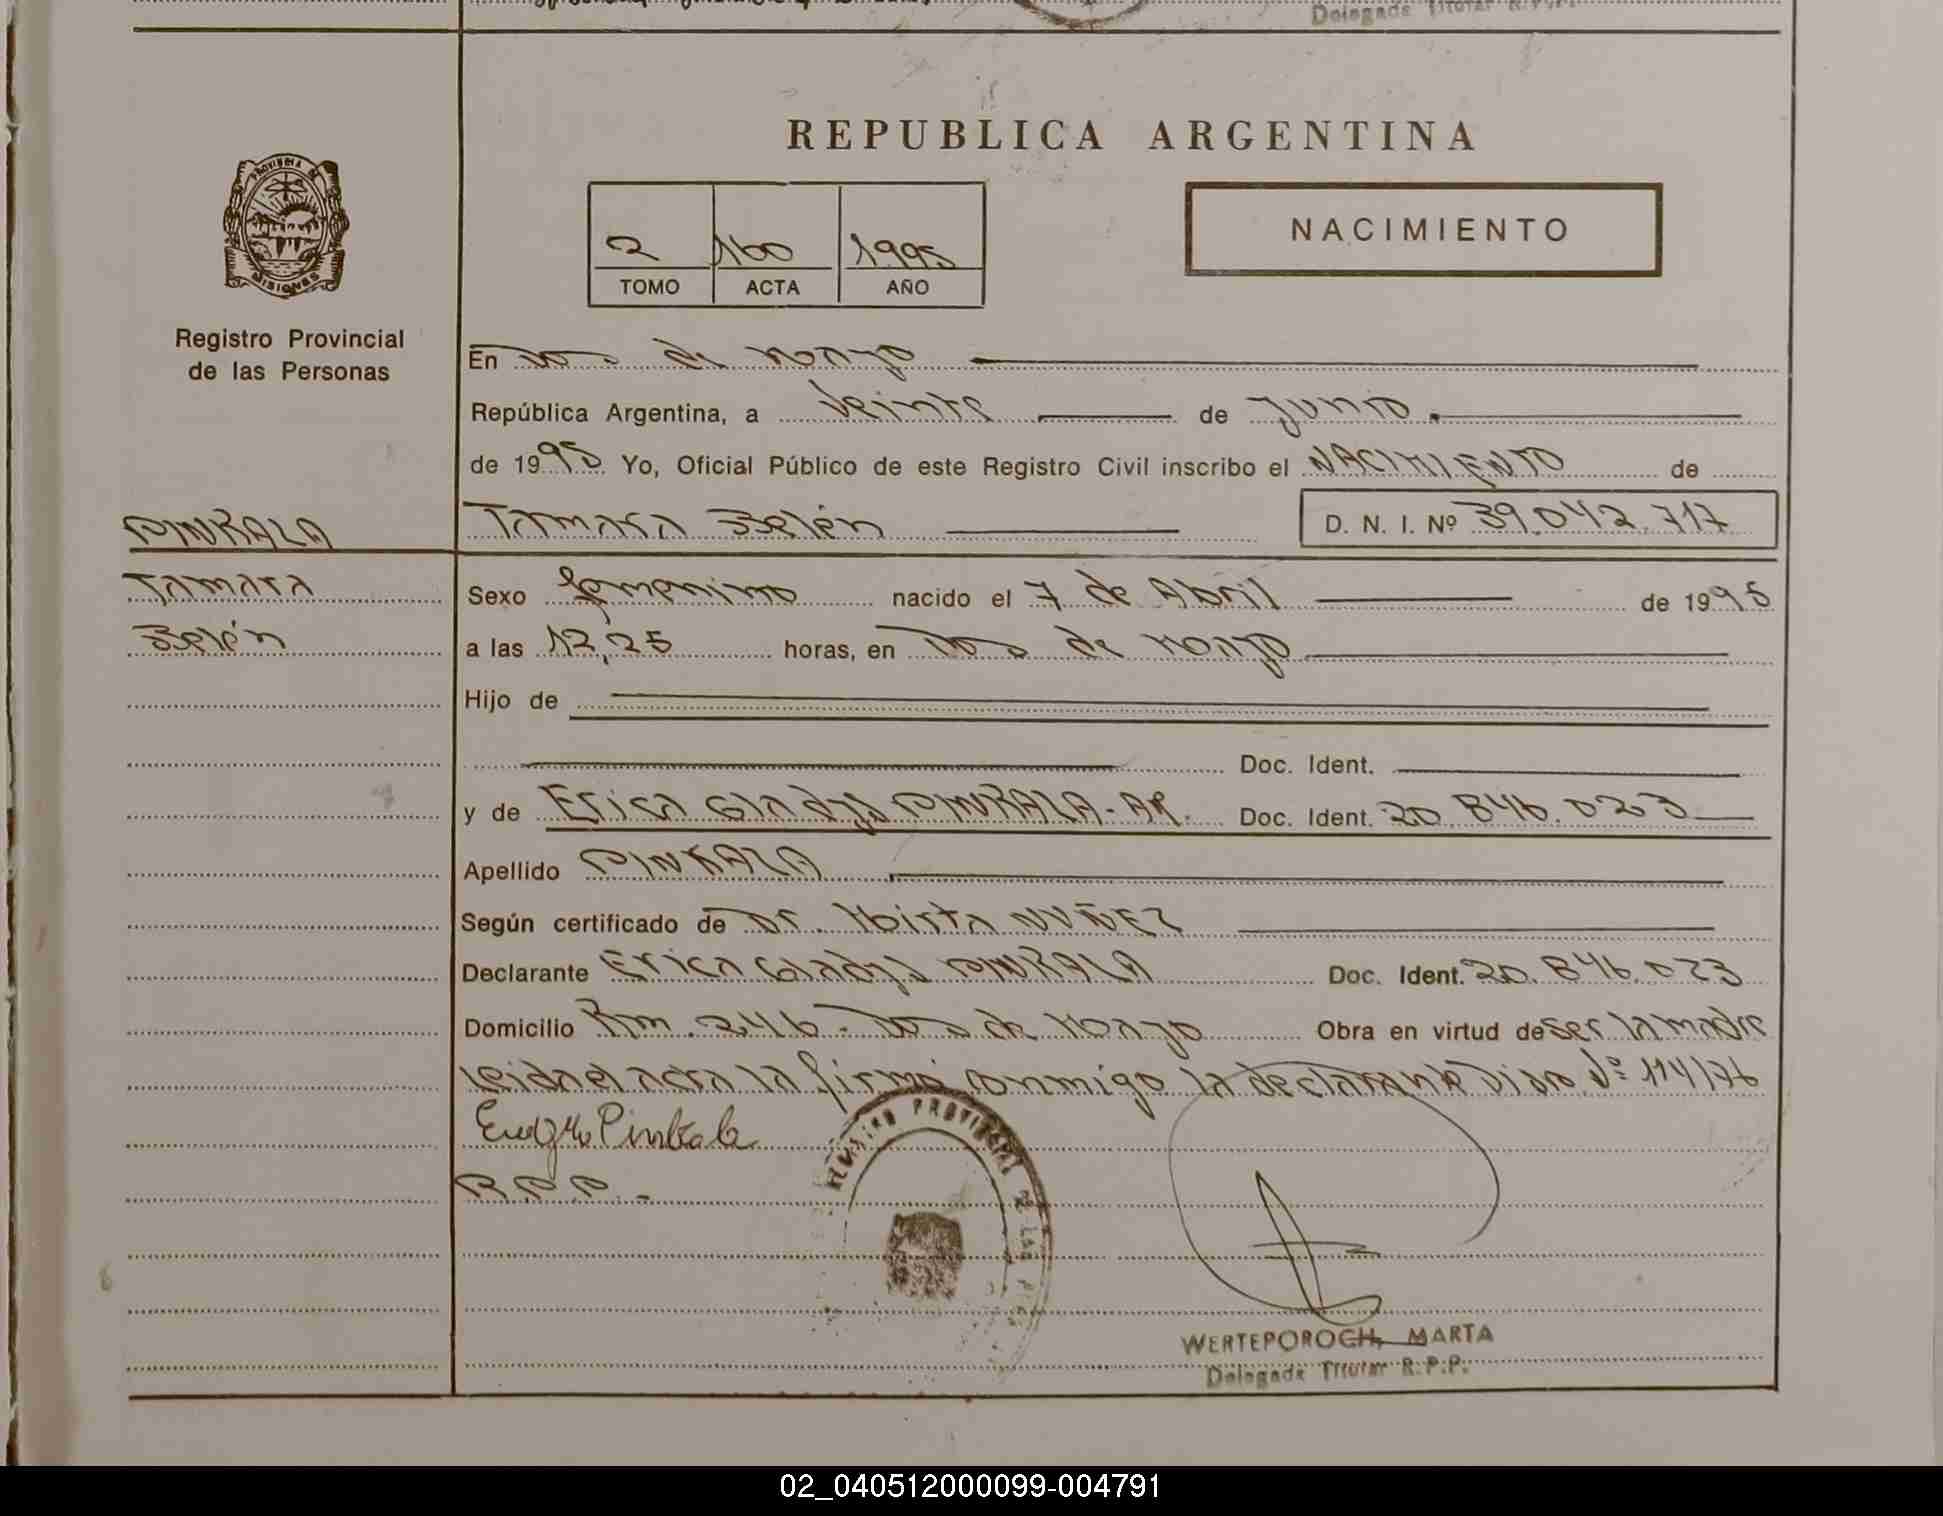 Delegada Titular R.P.P.
REPUBLICA ARGENTINA
PROVINCIA DE MISIONES
NACIMIENTO
2 160 1995
TOMO ACTA AÑO
Registro Provincial
de las Personas
En Dos de Mayo
República Argentina, a Veinte de Junio
de 1995 Yo, Oficial Público de este Registro Civil inscribo el NACIMIENTO de
PINKALA
Tamara Belén D. N. I. Nº 39.042.717
Tamara
Belén
Sexo femenino nacido el 7 de Abril de 1995
a las 12,25 horas, en Dos de Mayo
Hijo de
Doc. Ident.
y de Erica Gladys PINKALA - AR. Doc. Ident. 20.846.023
Apellido PINKALA
Según certificado de Dr. Mirta NUÑEZ
Declarante Erica Gladys PINKALA Doc. Ident. 20.846.023
Domicilio Km. 246 - Dos de Mayo Obra en virtud de ser la madre
Leida el acta la firma conmigo la declarante Nº 114/76
Pinkala
R.P.P.-
REGISTRO PROVINCIAL DE LAS
WERTEPOROCH, MARTA
Delegada Titular R.P.P.
02_040512000099-004791